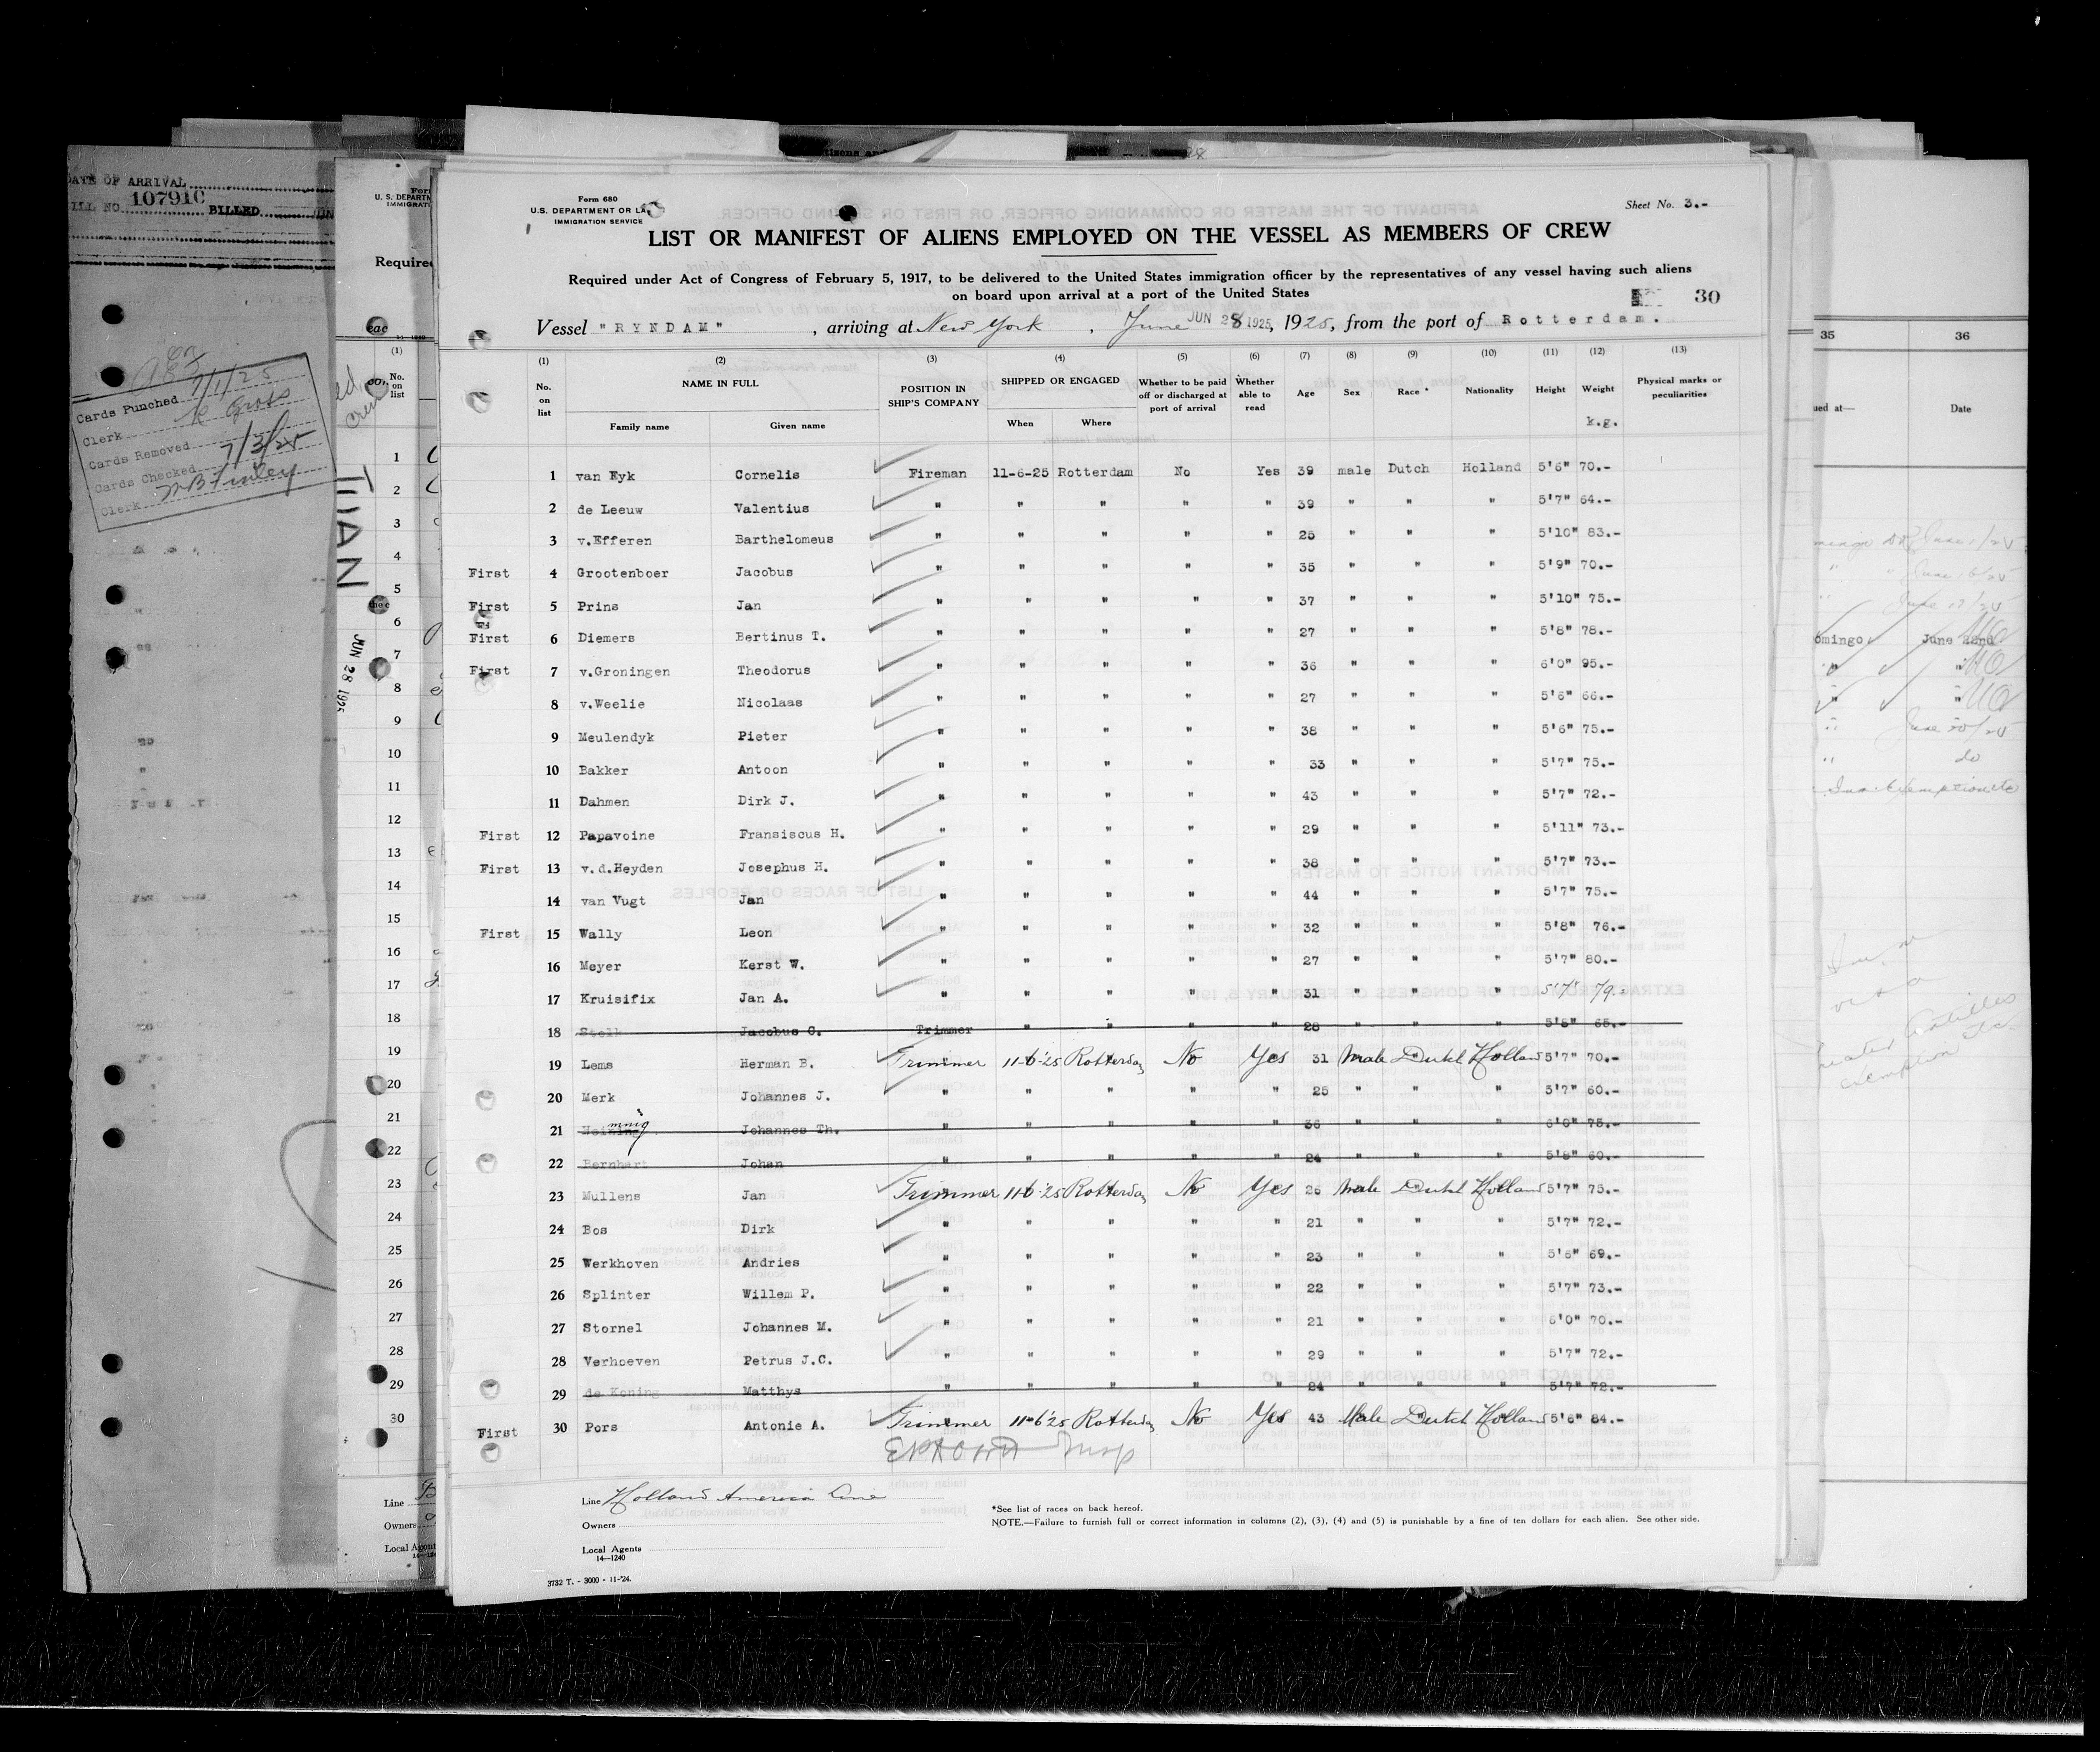 DATE OF ARRIVAL
BILL NO. 107910 BILLED JUN
Cards Punched 7/1/25
Clerk K Gross
Cards Removed
Cards Checked 7/3/25
Clerk
U. S. DEPARTM
IMMIGRATI
Required
(1)
No. on list
1
2
3
4
5
6
7
8
9
10
11
12
13
14
15
16
17
18
19
20
21
22
23
24
25
26
27
28
29
30
JUN 28 1925
Line
Owners
Local Agent
Form 680
U.S. DEPARTMENT OF LA
IMMIGRATION SERVICE
Sheet No. 3.-
LIST OR MANIFEST OF ALIENS EMPLOYED ON THE VESSEL AS MEMBERS OF CREW
Required under Act of Congress of February 5, 1917, to be delivered to the United States immigration officer by the representatives of any vessel having such aliens
on board upon arrival at a port of the United States
30
Vessel "RYNDAM", arriving at New York, June JUN 28 1925, 1925, from the port of Rotterdam.
(1) (2) (3) (4) (5) (6) (7) (8) (9) (10) (11) (12) (13)
No. on list NAME IN FULL Family name Given name POSITION IN SHIP'S COMPANY SHIPPED OR ENGAGED When Where Whether to be paid off or discharged at port of arrival Whether able to read Age Sex Race * Nationality Height Weight k.g. Physical marks or peculiarities
1 van Eyk Cornelis Fireman 11-6-25 Rotterdam No Yes 39 male Dutch Holland 5'6" 70.-
2 de Leeuw Valentius " " " " " 39 " " " 5'7" 64.-
3 v.Efferen Barthelomeus " " " " " 25 " " " 5'10" 83.-
First 4 Grootenboer Jacobus " " " " " 35 " " " 5'9" 70.-
First 5 Prins Jan " " " " " 37 " " " 5'10" 75.-
First 6 Diemers Bertinus T. " " " " " 27 " " " 5'8" 78.-
First 7 v.Groningen Theodorus " " " " " 36 " " " 6'0" 95.-
8 v.Weelie Nicolaas " " " " " 27 " " " 5'6" 66.-
9 Meulendyk Pieter " " " " " 38 " " " 5'6" 75.-
10 Bakker Antoon " " " " " 33 " " " 5'7" 75.-
11 Dahmen Dirk J. " " " " " 43 " " " 5'7" 72.-
First 12 Papavoine Fransiscus H. " " " " " 29 " " " 5'11" 73.-
First 13 v.d.Heyden Josephus H. " " " " " 38 " " " 5'7" 73.-
14 van Vugt Jan " " " " " 44 " " " 5'7" 75.-
First 15 Wally Leon " " " " " 32 " " " 5'8" 76.-
16 Meyer Kerst W. " " " " " 27 " " " 5'7" 80.-
17 Kruisifix Jan A. " " " " " 31 " " " 5'7" 79.-
18 Stolk Jacobus C. Trimmer " " " " 28 " " " 5'8" 65.-
19 Lems Herman B. Trimmer 11-6-'25 Rotterdam No Yes 31 Male Dutch Holland 5'7" 70.-
20 Merk Johannes J. " " " " " 25 " " " 5'7" 60.-
21 Johannes Th. " " " " " 36 " " " 6'0" 75.-
22 Bernhart Johan " " " " " 24 " " " 5'8" 60.-
23 Mullens Jan Trimmer 11-6-'25 Rotterdam No Yes 26 Male Dutch Holland 5'7" 75.-
24 Bos Dirk " " " " " 21 " " " 5'7" 72.-
25 Werkhoven Andries " " " " " 23 " " " 5'6" 69.-
26 Splinter Willem P. " " " " " 22 " " " 5'7" 73.-
27 Stornel Johannes M. " " " " " 21 " " " 6'0" 70.-
28 Verhoeven Petrus J.C. " " " " " 29 " " " 5'7" 72.-
29 de Koning Matthys " " " " " 24 " " " 5'7" 72.-
First 30 Pors Antonie A. Trimmer 11-6-'25 Rotterdam No Yes 43 Male Dutch Holland 5'6" 84.-
Line Holland America Line
Owners
Local Agents
14—1240
*See list of races on back hereof.
NOTE.—Failure to furnish full or correct information in columns (2), (3), (4) and (5) is punishable by a fine of ten dollars for each alien. See other side.
3732 T. - 3000 - 11-'24.
35 36
ued at— Date
omingo June 22nd
do